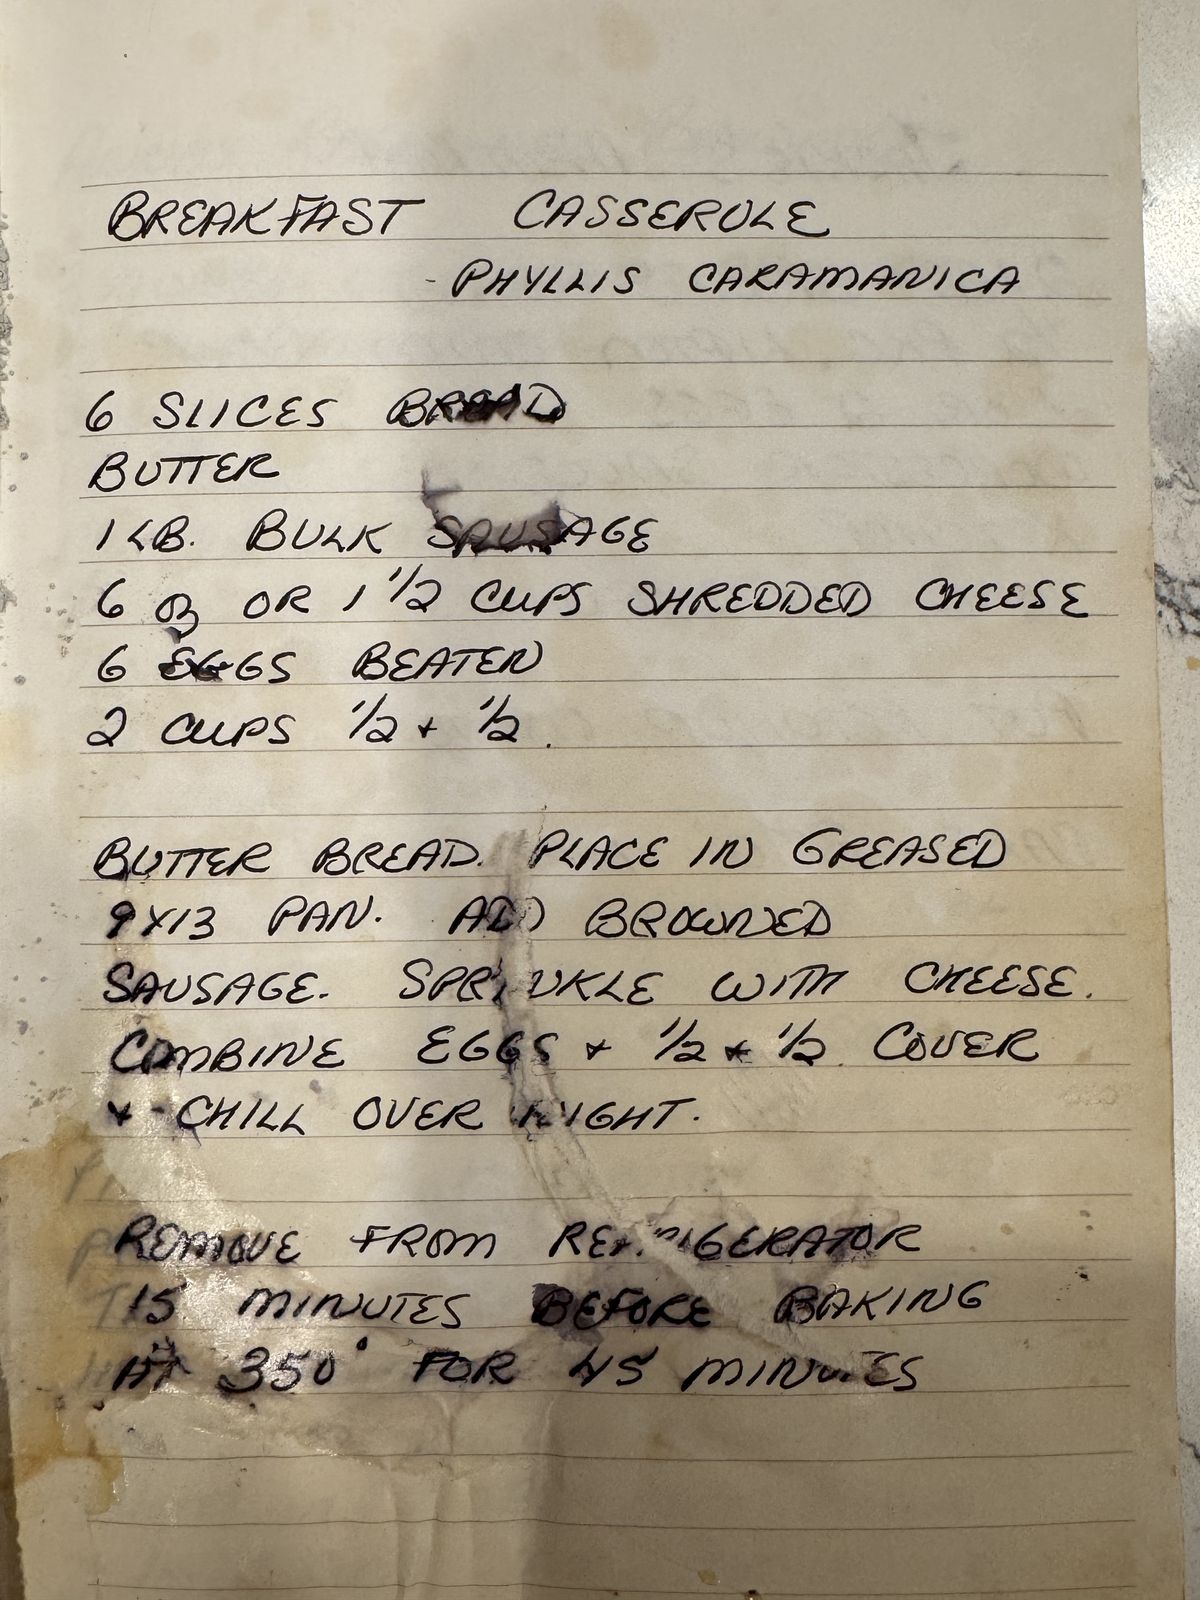 BREAKFAST CASSEROLE
- PHYLLIS CARAMANICA
6 SLICES BREAD
BUTTER
1 LB. BULK SAUSAGE
6 oz OR 1 1/2 CUPS SHREDDED CHEESE
6 EGGS BEATEN
2 CUPS 1/2 + 1/2.
BUTTER BREAD. PLACE IN GREASED
9X13 PAN. ADD BROWNED
SAUSAGE. SPRINKLE WITH CHEESE.
COMBINE EGGS + 1/2 + 1/2. COVER
+ CHILL OVER NIGHT.
REMOVE FROM REFRIGERATOR
15 MINUTES BEFORE BAKING
AT 350° FOR 45 MINUTES